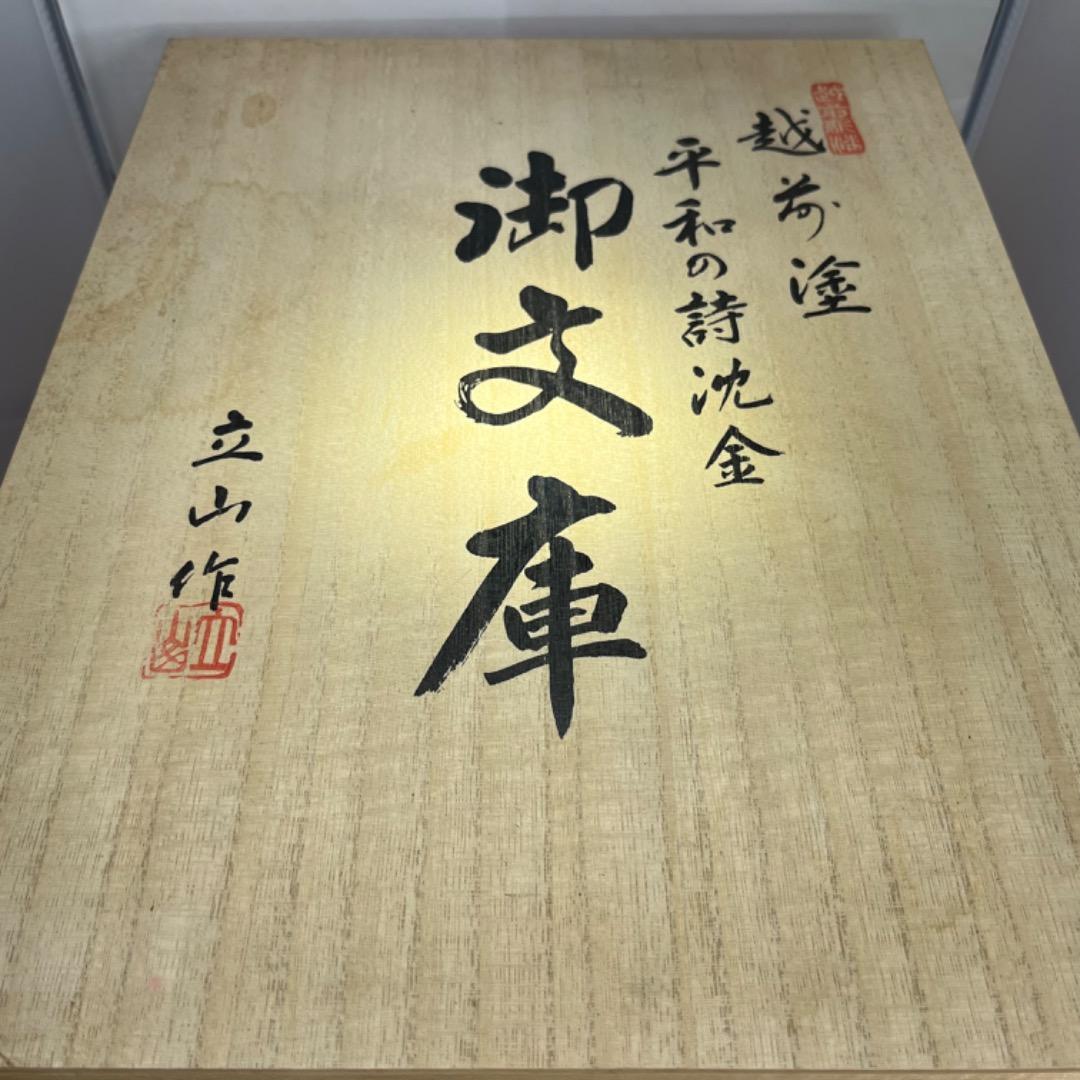 越前塗
平和の詩沈金
御文庫
立山作